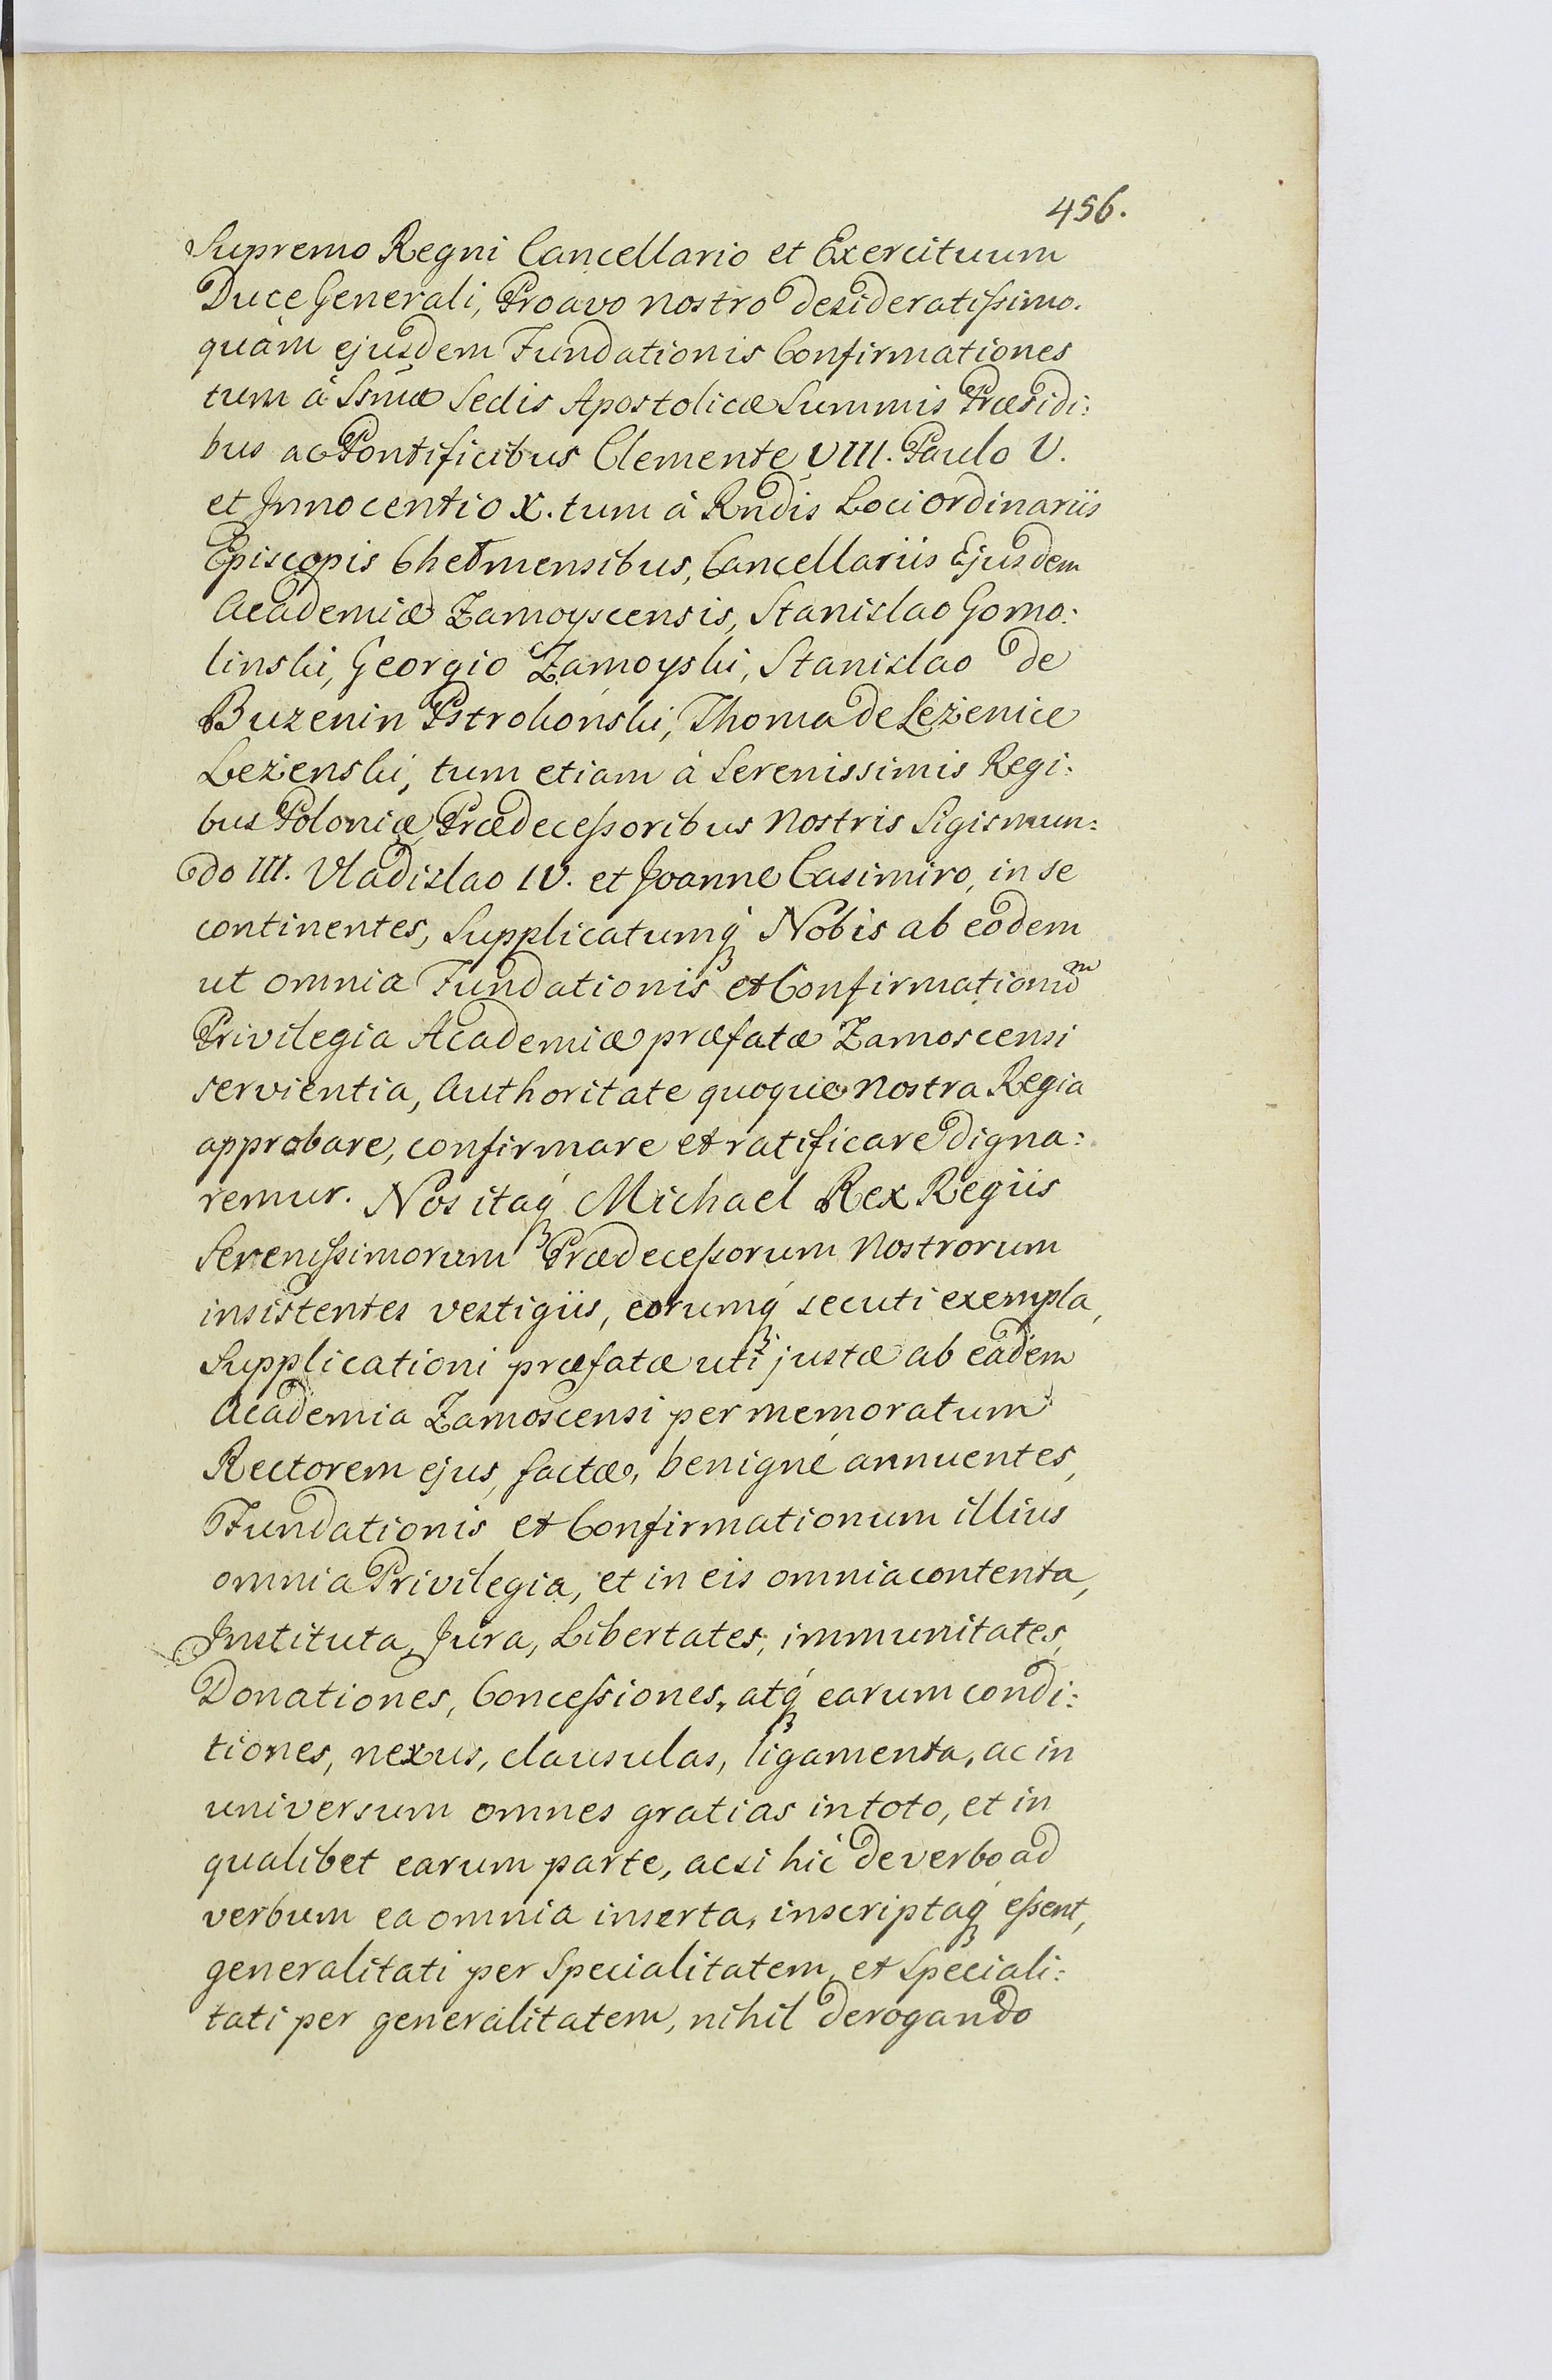 456.
Supremo Regni Cancellario et Exercituum
Duce Generali, Proavo nostro desideratissimo.
quàm ejusdem Fundationis Confirmationes
tum à Ssmæ Sedis Apostolicæ Summis Præsidi:
bus ac Pontificibus Clemente VIII. Paulo V.
et Innocentio X. tum à Rndis Loci ordinariis
Episcopis Chełmensibus, Cancellariis Ejusdem
Academiæ Zamoyscensis, Stanislao Gomo:
linski, Georgio Zamoyski, Stanislao de
Buzenin Pstrokonski, Thoma de Leżenice
Leżenski, tum etiam à Serenissimis Regi:
bus Poloniæ Prædecessoribus Nostris Sigismun:
do III. Vladislao IV. et Joanne Casimiro, in se
continentes, Supplicatumq́ Nobis ab eodem
ut omnia Fundationis et Confirmationũm
Privilegia Academiæ præfatæ Zamoscensi
servientia, Authoritate quoque nostra Regia
approbare, confirmare et ratificare digna:
remur. Nos itaq́ Michael Rex Regiis
Serenissimorum Prædecessorum Nostrorum
insistentes vestigiis, eorumq́ secuti exempla,
Supplicationi præfatæ uti justæ ab eadem
Academia Zamoscensi per memoratum
Rectorem ejus, factæ, benignè annuentes,
Fundationis et Confirmationum illius
omnia Privilegia, et in eis omnia contenta,
Instituta, Jura, Libertates, immunitates,
Donationes, Concessiones, atq́ earum condi:
tiones, nexus, clausulas, ligamenta, ac in
universum omnes gratias in toto, et in
qualibet earum parte, acsi hic de verbo ad
verbum ea omnia inserta, inscriptaq́ essent,
generalitati per Specialitatem, et Speciali:
tati per generalitatem, nihil derogando